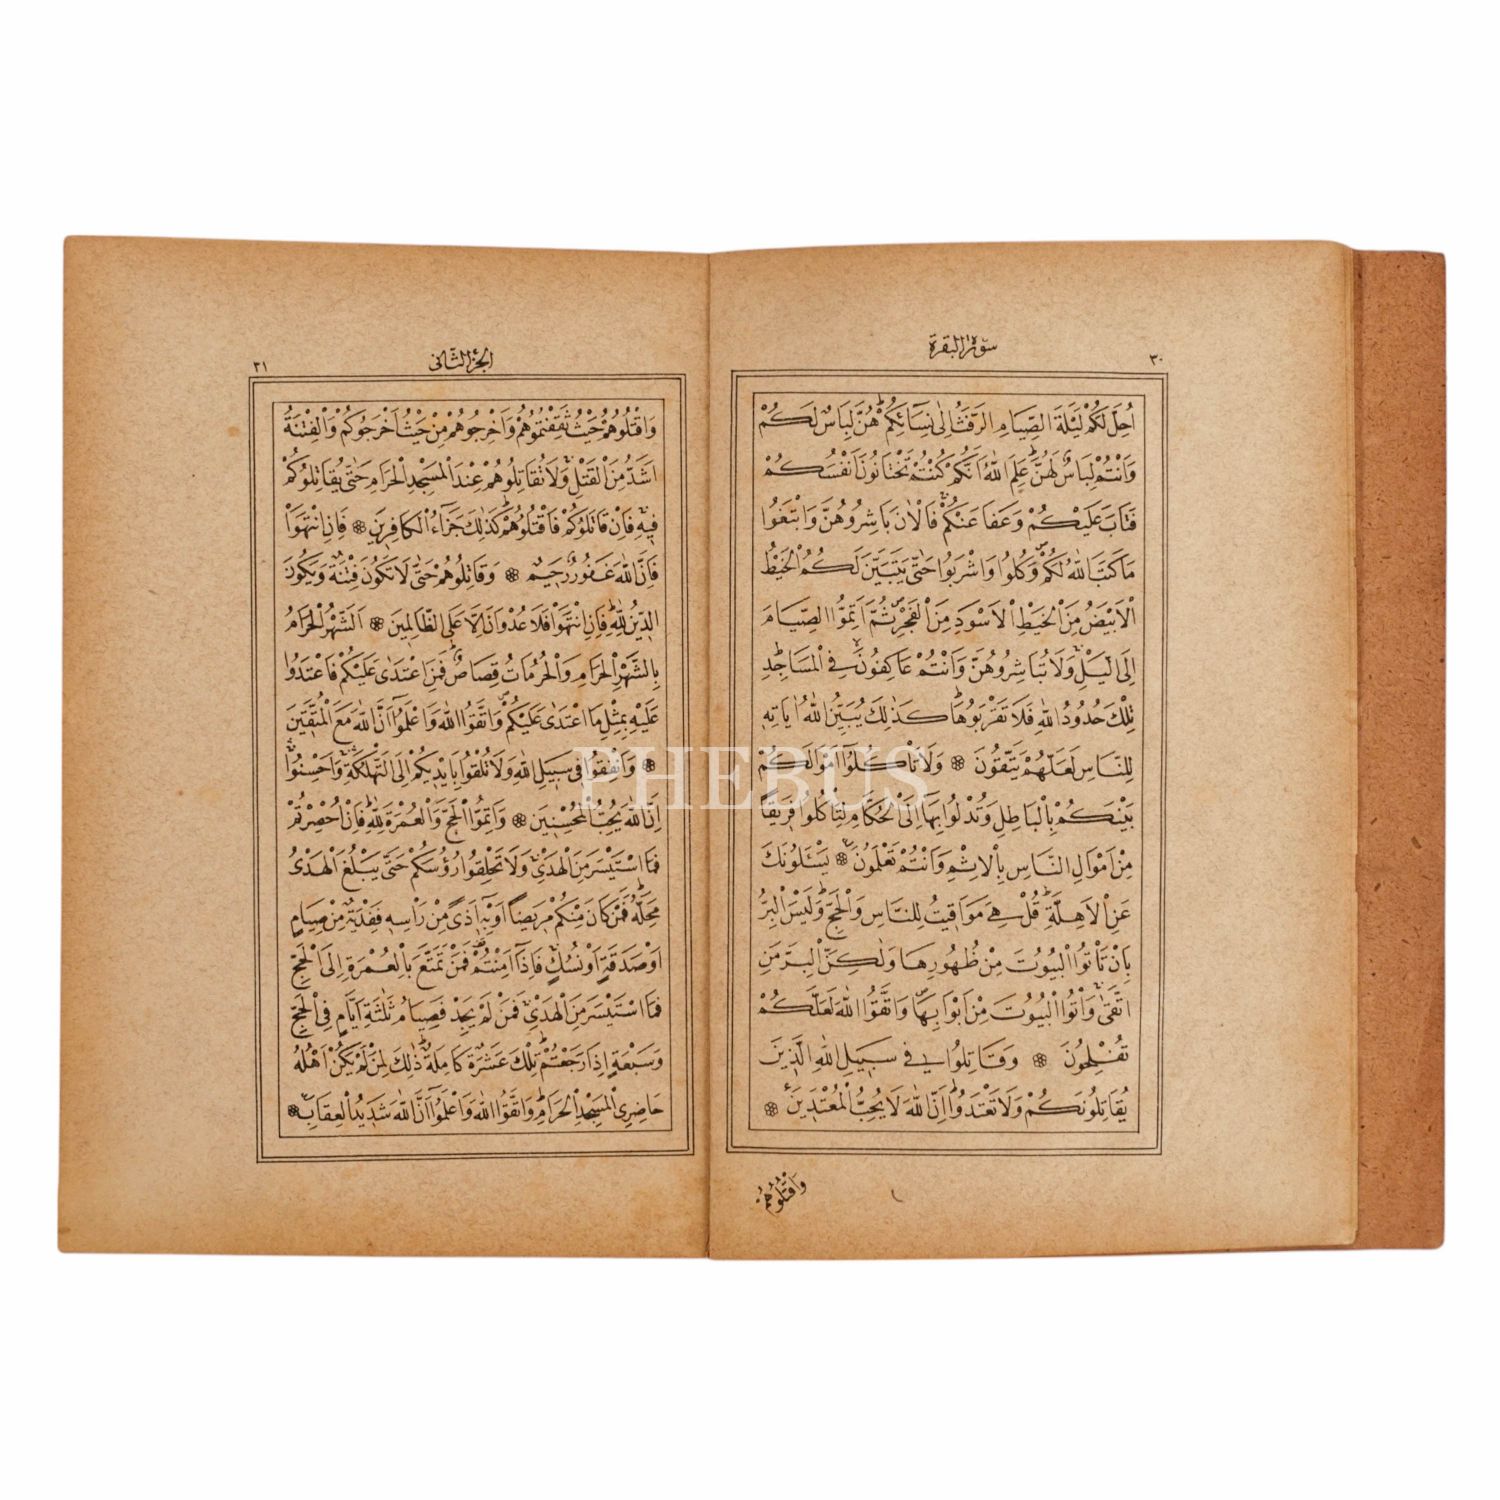 ٣٠
سورة البقرة
اُحِلَّ لَكُمْ لَيْلَةَ الصِّيَامِ الرَّفَثُ اِلٰى نِسَائِكُمْ هُنَّ لِبَاسٌ لَكُمْ
وَاَنْتُمْ لِبَاسٌ لَهُنَّ عَلِمَ اللّٰهُ اَنَّكُمْ كُنْتُمْ تَخْتَانُونَ اَنْفُسَكُمْ
فَتَابَ عَلَيْكُمْ وَعَفَا عَنْكُمْ فَالْاٰنَ بَاشِرُوهُنَّ وَابْتَغُوا
مَا كَتَبَ اللّٰهُ لَكُمْ وَكُلُوا وَاشْرَبُوا حَتّٰى يَتَبَيَّنَ لَكُمُ الْخَيْطُ
الْاَبْيَضُ مِنَ الْخَيْطِ الْاَسْوَدِ مِنَ الْفَجْرِ ثُمَّ اَتِمُّوا الصِّيَامَ
اِلَى الَّيْلِ وَلَا تُبَاشِرُوهُنَّ وَاَنْتُمْ عَاكِفُونَ فِي الْمَسَاجِدِ
تِلْكَ حُدُودُ اللّٰهِ فَلَا تَقْرَبُوهَا كَذٰلِكَ يُبَيِّنُ اللّٰهُ اٰيَاتِهٖ
لِلنَّاسِ لَعَلَّهُمْ يَتَّقُونَ وَلَا تَاْكُلُوا اَمْوَالَكُمْ
بَيْنَكُمْ بِالْبَاطِلِ وَتُدْلُوا بِهَا اِلَى الْحُكَّامِ لِتَاْكُلُوا فَرِيقًا
مِنْ اَمْوَالِ النَّاسِ بِالْاِثْمِ وَاَنْتُمْ تَعْلَمُونَ يَسْـَٔلُونَكَ
عَنِ الْاَهِلَّةِ قُلْ هِيَ مَوَاقِيتُ لِلنَّاسِ وَالْحَجِّ وَلَيْسَ الْبِرُّ
بِاَنْ تَاْتُوا الْبُيُوتَ مِنْ ظُهُورِهَا وَلٰكِنَّ الْبِرَّ مَنِ
اتَّقٰى وَاْتُوا الْبُيُوتَ مِنْ اَبْوَابِهَا وَاتَّقُوا اللّٰهَ لَعَلَّكُمْ
تُفْلِحُونَ وَقَاتِلُوا فِي سَبِيلِ اللّٰهِ الَّذِينَ
يُقَاتِلُونَكُمْ وَلَا تَعْتَدُوا اِنَّ اللّٰهَ لَا يُحِبُّ الْمُعْتَدِينَ
وَاقْتُلُوهُمْ
الجزء الثانى
٣١
وَاقْتُلُوهُمْ حَيْثُ ثَقِفْتُمُوهُمْ وَاَخْرِجُوهُمْ مِنْ حَيْثُ اَخْرَجُوكُمْ وَالْفِتْنَةُ
اَشَدُّ مِنَ الْقَتْلِ وَلَا تُقَاتِلُوهُمْ عِنْدَ الْمَسْجِدِ الْحَرَامِ حَتّٰى يُقَاتِلُوكُمْ
فِيهِ فَاِنْ قَاتَلُوكُمْ فَاقْتُلُوهُمْ كَذٰلِكَ جَزَاءُ الْكَافِرِينَ فَاِنِ انْتَهَوْا
فَاِنَّ اللّٰهَ غَفُورٌ رَحِيمٌ وَقَاتِلُوهُمْ حَتّٰى لَا تَكُونَ فِتْنَةٌ وَيَكُونَ
الدِّينُ لِلّٰهِ فَاِنِ انْتَهَوْا فَلَا عُدْوَانَ اِلَّا عَلَى الظَّالِمِينَ اَلشَّهْرُ الْحَرَامُ
بِالشَّهْرِ الْحَرَامِ وَالْحُرُمَاتُ قِصَاصٌ فَمَنِ اعْتَدٰى عَلَيْكُمْ فَاعْتَدُوا
عَلَيْهِ بِمِثْلِ مَا اعْتَدٰى عَلَيْكُمْ وَاتَّقُوا اللّٰهَ وَاعْلَمُوا اَنَّ اللّٰهَ مَعَ الْمُتَّقِينَ
وَاَنْفِقُوا فِي سَبِيلِ اللّٰهِ وَلَا تُلْقُوا بِاَيْدِيكُمْ اِلَى التَّهْلُكَةِ وَاَحْسِنُوا
اِنَّ اللّٰهَ يُحِبُّ الْمُحْسِنِينَ وَاَتِمُّوا الْحَجَّ وَالْعُمْرَةَ لِلّٰهِ فَاِنْ اُحْصِرْتُمْ
فَمَا اسْتَيْسَرَ مِنَ الْهَدْيِ وَلَا تَحْلِقُوا رُؤُسَكُمْ حَتّٰى يَبْلُغَ الْهَدْيُ
مَحِلَّهُ فَمَنْ كَانَ مِنْكُمْ مَرِيضًا اَوْ بِهٖ اَذًى مِنْ رَاْسِهٖ فَفِدْيَةٌ مِنْ صِيَامٍ
اَوْ صَدَقَةٍ اَوْ نُسُكٍ فَاِذَا اَمِنْتُمْ فَمَنْ تَمَتَّعَ بِالْعُمْرَةِ اِلَى الْحَجِّ
فَمَا اسْتَيْسَرَ مِنَ الْهَدْيِ فَمَنْ لَمْ يَجِدْ فَصِيَامُ ثَلٰثَةِ اَيَّامٍ فِي الْحَجِّ
وَسَبْعَةٍ اِذَا رَجَعْتُمْ تِلْكَ عَشَرَةٌ كَامِلَةٌ ذٰلِكَ لِمَنْ لَمْ يَكُنْ اَهْلُهُ
حَاضِرِي الْمَسْجِدِ الْحَرَامِ وَاتَّقُوا اللّٰهَ وَاعْلَمُوا اَنَّ اللّٰهَ شَدِيدُ الْعِقَابِ
PHEBUS